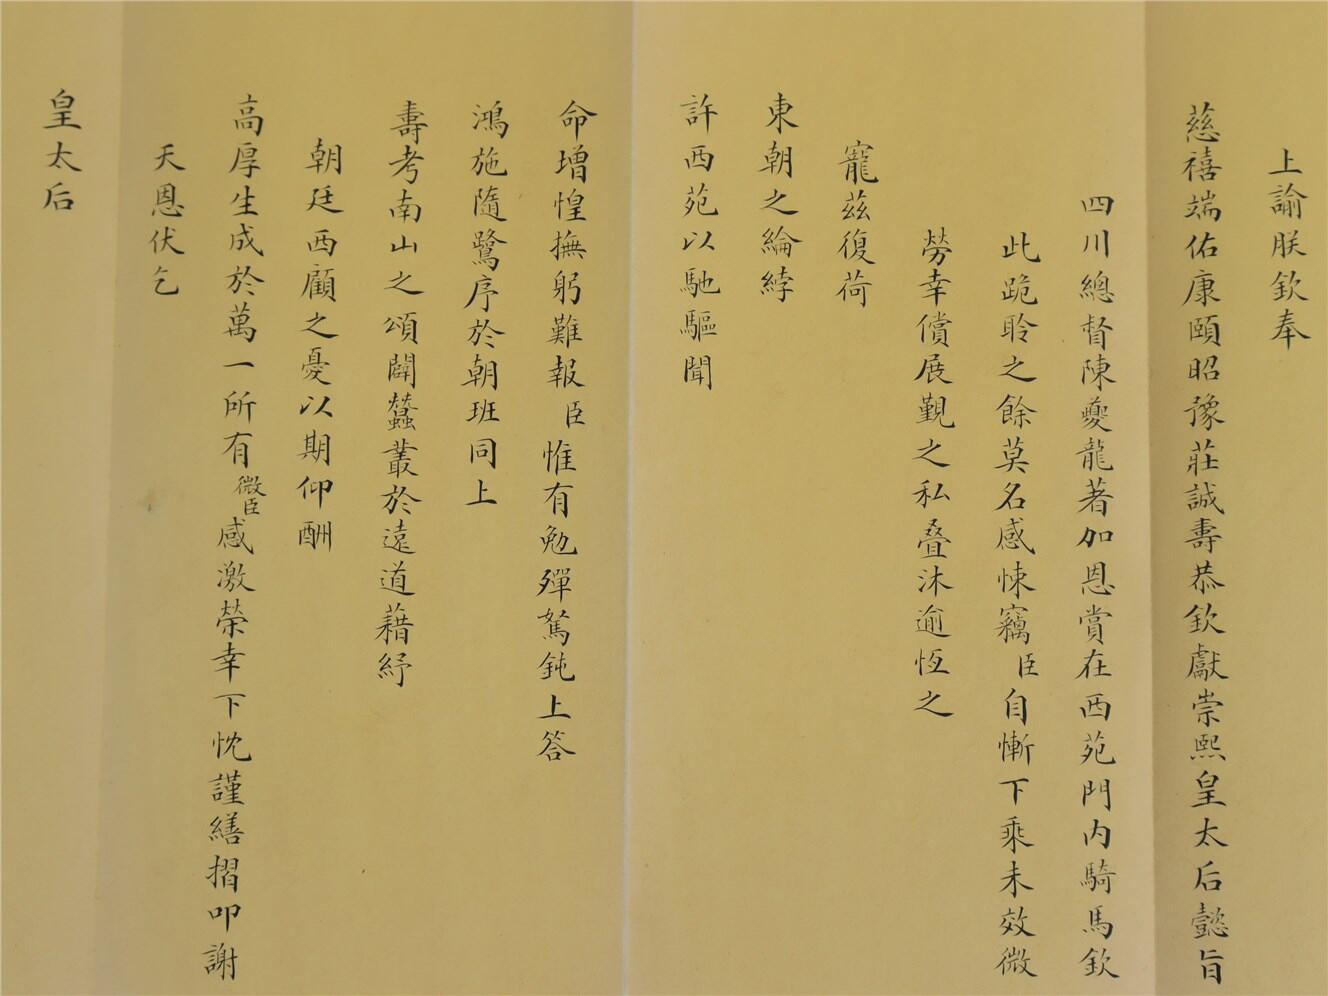 上諭朕欽奉
慈禧端佑康頤昭豫莊誠壽恭欽獻崇熙皇太后懿旨
四川總督陳夔龍著加恩賞在西苑門內騎馬欽
此跪聆之餘莫名感悚竊臣自慚下乘未效微
勞幸償展覲之私叠沐逾恆之
寵茲復荷
東朝之綸綍
許西苑以馳驅聞
命增惶撫躬難報臣惟有勉殫駑鈍上答
鴻施隨鷺序於朝班同上
壽考南山之頌闢蠶叢於遠道藉紓
朝廷西顧之憂以期仰酬
高厚生成於萬一所有微臣感激榮幸下忱謹繕摺叩謝
天恩伏乞
皇太后